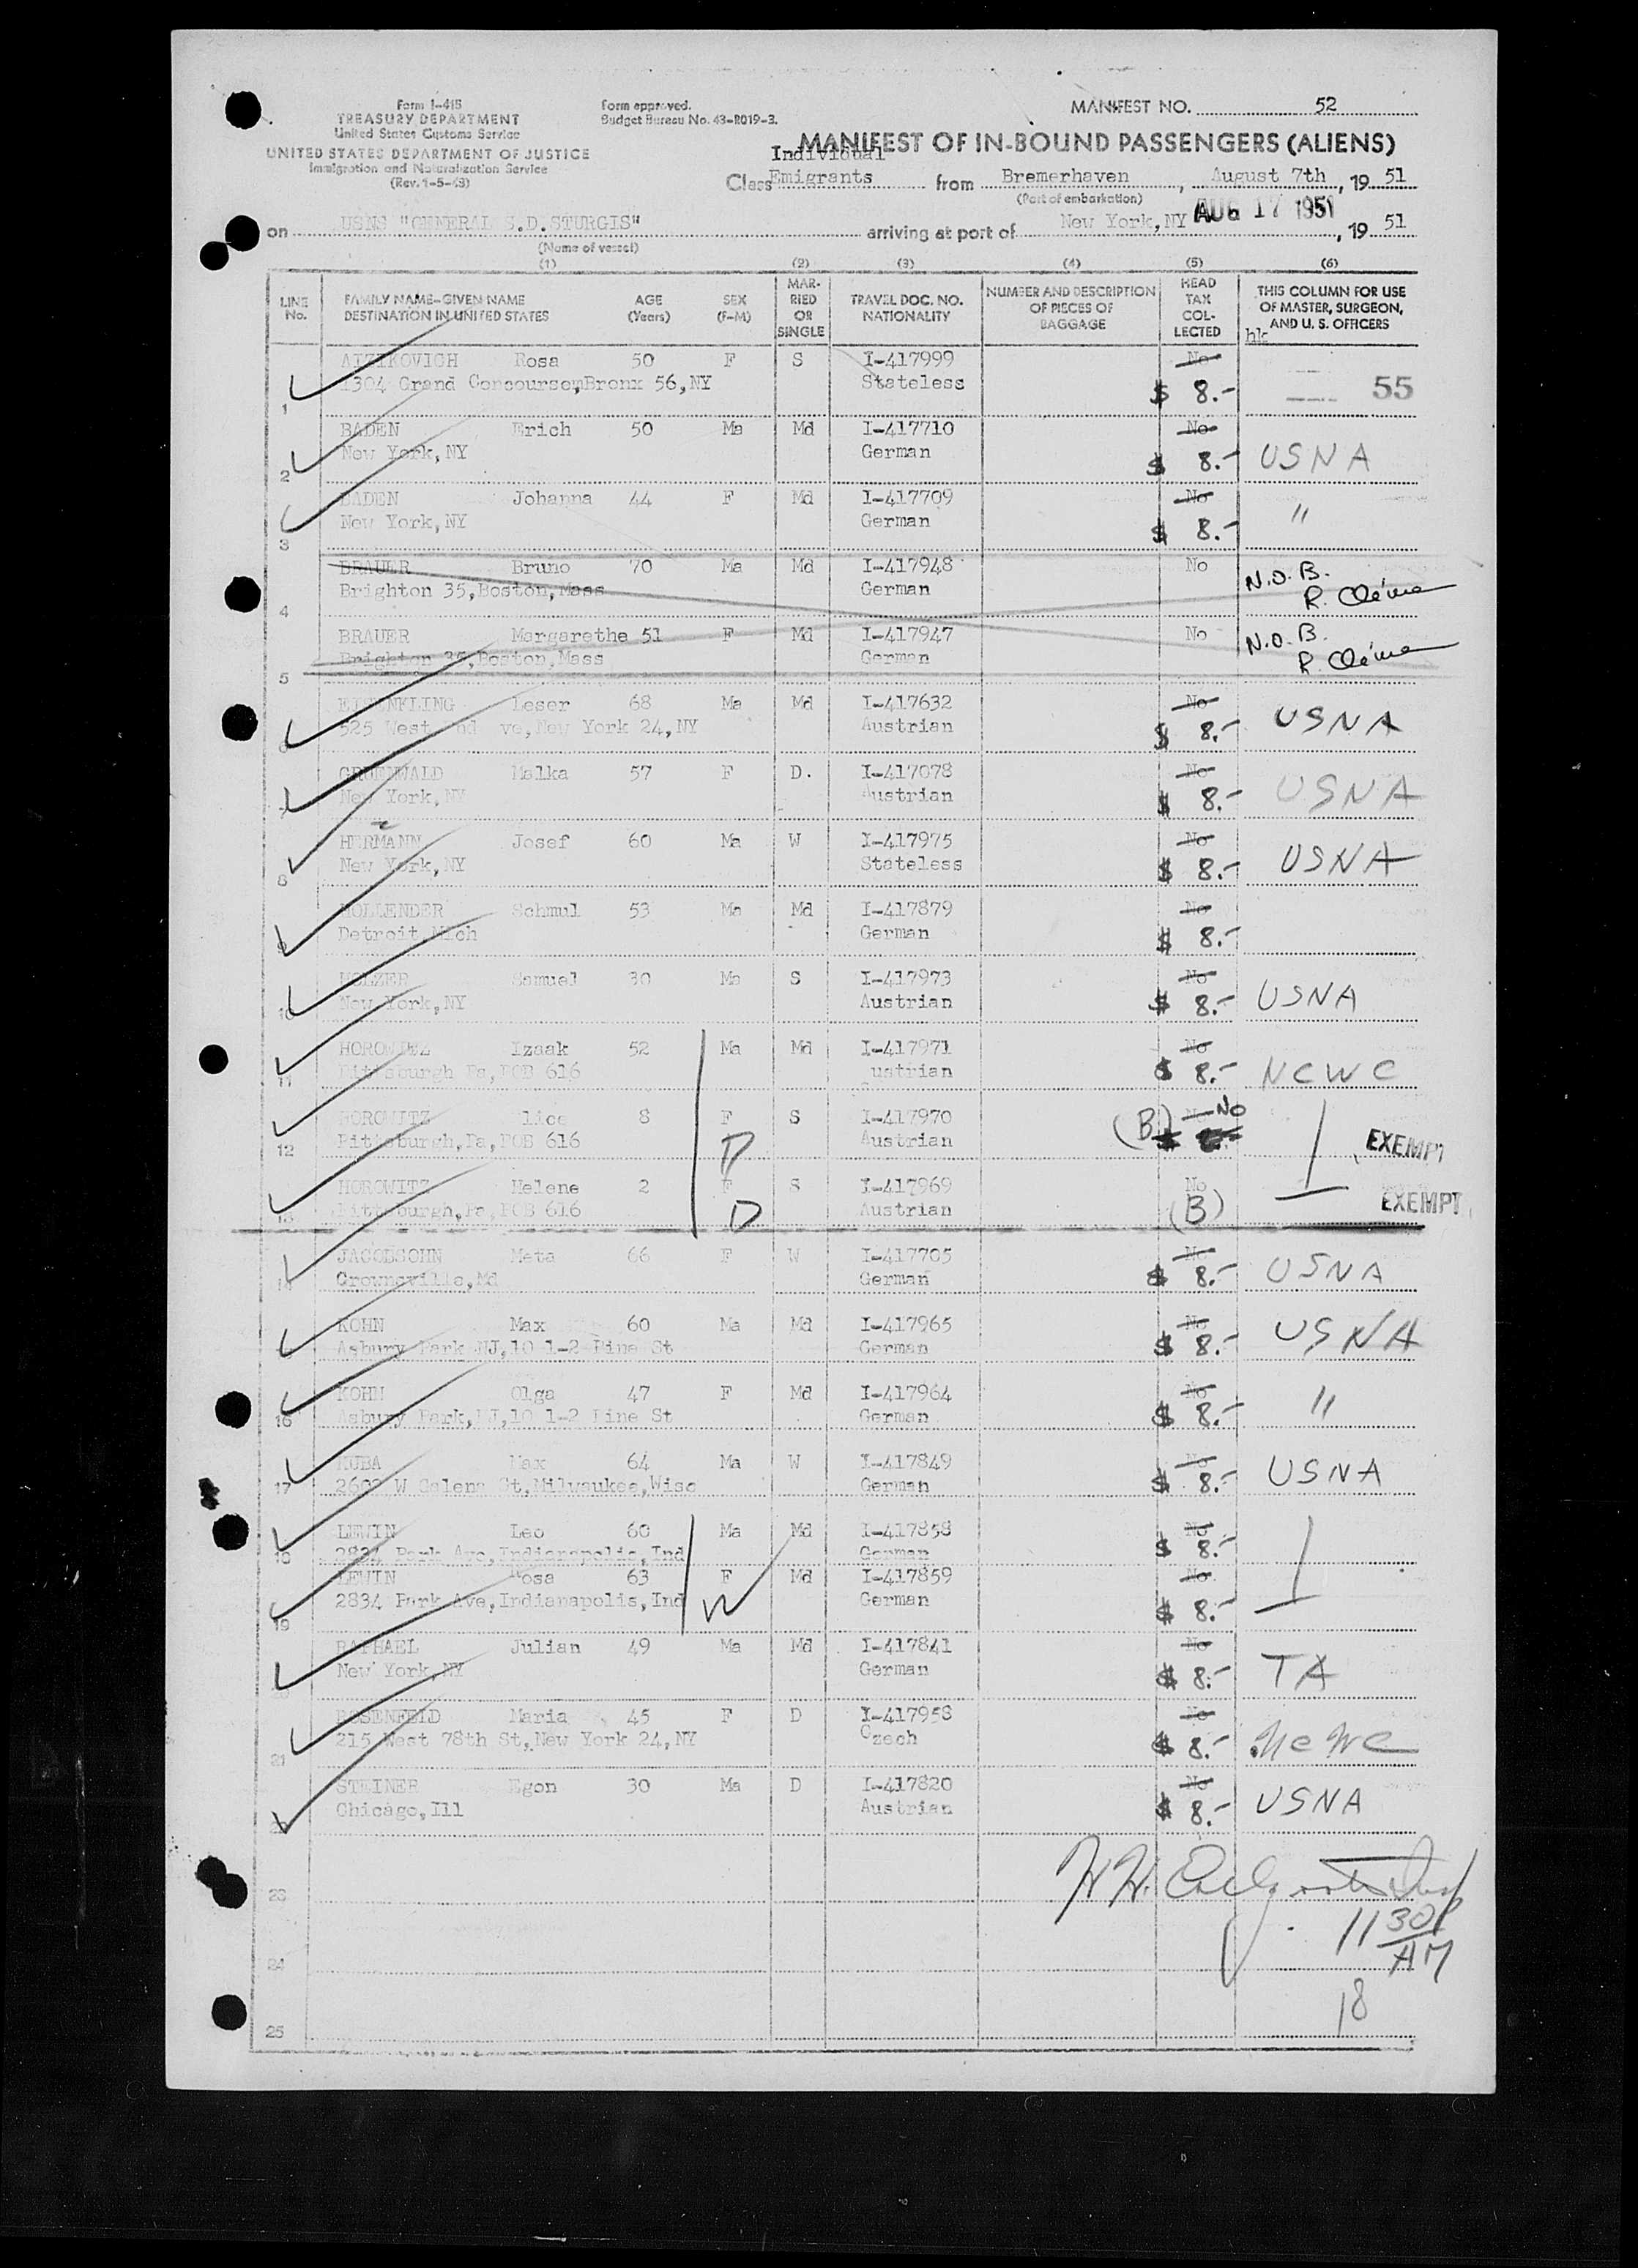 Form I-415
TREASURY DEPARTMENT
United States Customs Service
UNITED STATES DEPARTMENT OF JUSTICE
Immigration and Naturalization Service
(Rev. 1-5-49)
Form approved.
Budget Bureau No. 43-R019-3.
MANIFEST NO. 52
MANIFEST OF IN-BOUND PASSENGERS (ALIENS)
Individual
Class Emigrants from Bremerhaven, August 7th, 19 51
(Port of embarkation)
on USNS "GENERAL S.D.STURGIS" arriving at port of New York,NY AUG 17 1951, 19 51
(Name of vessel)
(1) (2) (3) (4) (5) (6)
LINE No. FAMILY NAME-GIVEN NAME DESTINATION IN UNITED STATES AGE (Years) SEX (F-M) MARRIED OR SINGLE TRAVEL DOC. NO. NATIONALITY NUMBER AND DESCRIPTION OF PIECES OF BAGGAGE HEAD TAX COLLECTED THIS COLUMN FOR USE OF MASTER, SURGEON, AND U. S. OFFICERS
hk
AIZIKOVICH Rosa 50 F S I-417999 No
1 1304 Grand Concourse,Bronx 56,NY Stateless $ 8.- 55
BADEN Erich 50 Ma Md I-417710 No
2 New York,NY German $ 8.- USNA
BADEN Johanna 44 F Md I-417709 No
3 New York,NY German $ 8.- "
BRAUER Bruno 70 Ma Md I-417948 No N.O.B.
4 Brighton 35,Boston,Mass German R.
BRAUER Margarethe 51 F Md I-417947 No N.O.B.
5 Brighton 35,Boston,Mass German R.
Leser 68 Ma Md I-417632 No
6 525 West End Ave,New York 24,NY Austrian $ 8.- USNA
GRUENWALD Malka 57 F D. I-417078 No
7 New York,NY Austrian $ 8.- USNA
HERMANN Josef 60 Ma W I-417975 No
8 New York,NY Stateless $ 8.- USNA
HOLLENDER Schmul 53 Ma Md I-417879 No
9 Detroit Mich German $ 8.-
HOLZER Samuel 30 Ma S I-417973 No
10 New York,NY Austrian $ 8.- USNA
HOROWITZ Izaak 52 Ma Md I-417971 No
11 Pittsburgh Pa,POB 616 Austrian $ 8.- NCWC
HOROWITZ Alice 8 F S I-417970 No
12 Pittsburgh,Pa,POB 616 D Austrian (B) EXEMPT
HOROWITZ Helene 2 F S I-417969 No
13 Pittsburgh,Pa,POB 616 D Austrian (B) EXEMPT
JACOBSOHN Meta 66 F W I-417705 No
14 Crownsville,Md German $ 8.- USNA
KOHN Max 60 Ma Md I-417965 No
Asbury Park NJ,10 1-2 Pine St German $ 8.- USNA
KOHN Olga 47 F Md I-417964 No
16 Asbury Park,NJ,10 1-2 Pine St German $ 8.- "
KUBA Max 64 Ma W I-417849 No
17 W Galena St,Milwaukee,Wisc German $ 8.- USNA
LEWIN Leo 60 Ma Md I-417858 No
18 2834 Park Ave,Indianapolis,Ind German $ 8.-
LEWIN Rosa 63 F Md I-417859 No
19 2834 Park Ave,Indianapolis,Ind W German $ 8.-
RAPHAEL Julian 49 Ma Md I-417841 No
20 New York,NY German $ 8.- TA
ROSENFELD Maria 45 F D I-417958 No
21 215 West 78th St,New York 24,NY Czech $ 8.- NCWC
STEINER Egon 30 Ma D I-417820 No
22 Chicago,Ill Austrian $ 8.- USNA
23
11 30
24 AM
18
25